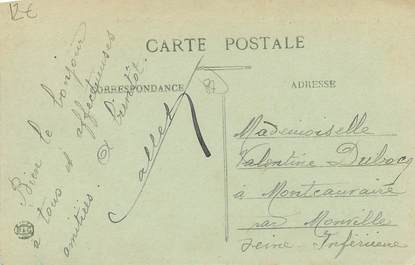 12€
CARTE POSTALE
CORRESPONDANCE
87
ADRESSE
Bien le bonjour
à tous et affectueuses
amitiés. A bientôt.
Mademoiselle
Valentine Dubocq
à Montcauvaire
par Monville
Seine-Inférieure